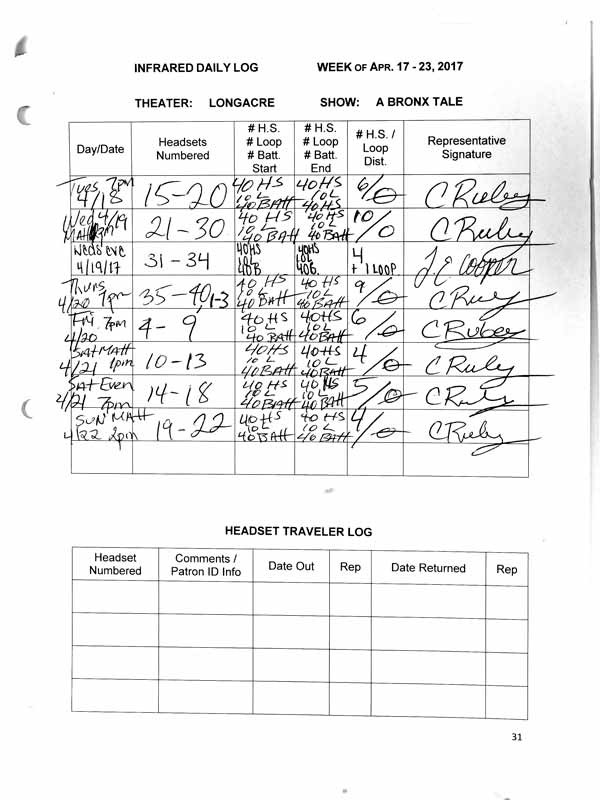 INFRARED DAILY LOG WEEK OF APR. 17 - 23, 2017
THEATER: LONGACRE SHOW: A BRONX TALE
Day/Date Headsets Numbered # H.S. # Loop # Batt. Start # H.S. # Loop # Batt. End # H.S. / Loop Dist. Representative Signature
Tues, 7pm 4/18 15-20 40 HS 10 L 40 BAtt 40 HS 10 L 40 HS 6/0 CRuby
Wed 4/19 MAtt 2pm 21-30 40 HS 10 L 40 BAtt 40 HS 10 L 40 BAtt 10/0 CRuby
Weds eve 4/19/17 31-34 40HS 10L 40B 40HS 10L 40B. 4 + 1 LOOP J E Cooper
Thurs 4/20 7pm 35-40, 1-3 40 HS 10 L 40 BAtt 40 HS 10 L 40 BAtt 9/0 CRuby
Fri 7pm 4/20 4-9 40 HS 10 L 40 BAtt 40 HS 10 L 40 BAtt 6/0 CRubey
SAt MAtt 4/21 1pm 10-13 40 HS 10 L 40 BAtt 40 HS 10 L 40 BAtt 4/0 CRuly
SAt Even 4/21 7pm 14-18 40 HS 10 L 40 BAtt 40 HS 10 L 40 BAtt 5/0 CRuly
SUN MAtt 4/22 2pm 19-22 40 HS 10 L 40 BAtt 40 HS 10 L 40 BAtt 4/0 CRuby
HEADSET TRAVELER LOG
Headset Numbered Comments / Patron ID Info Date Out Rep Date Returned Rep
31